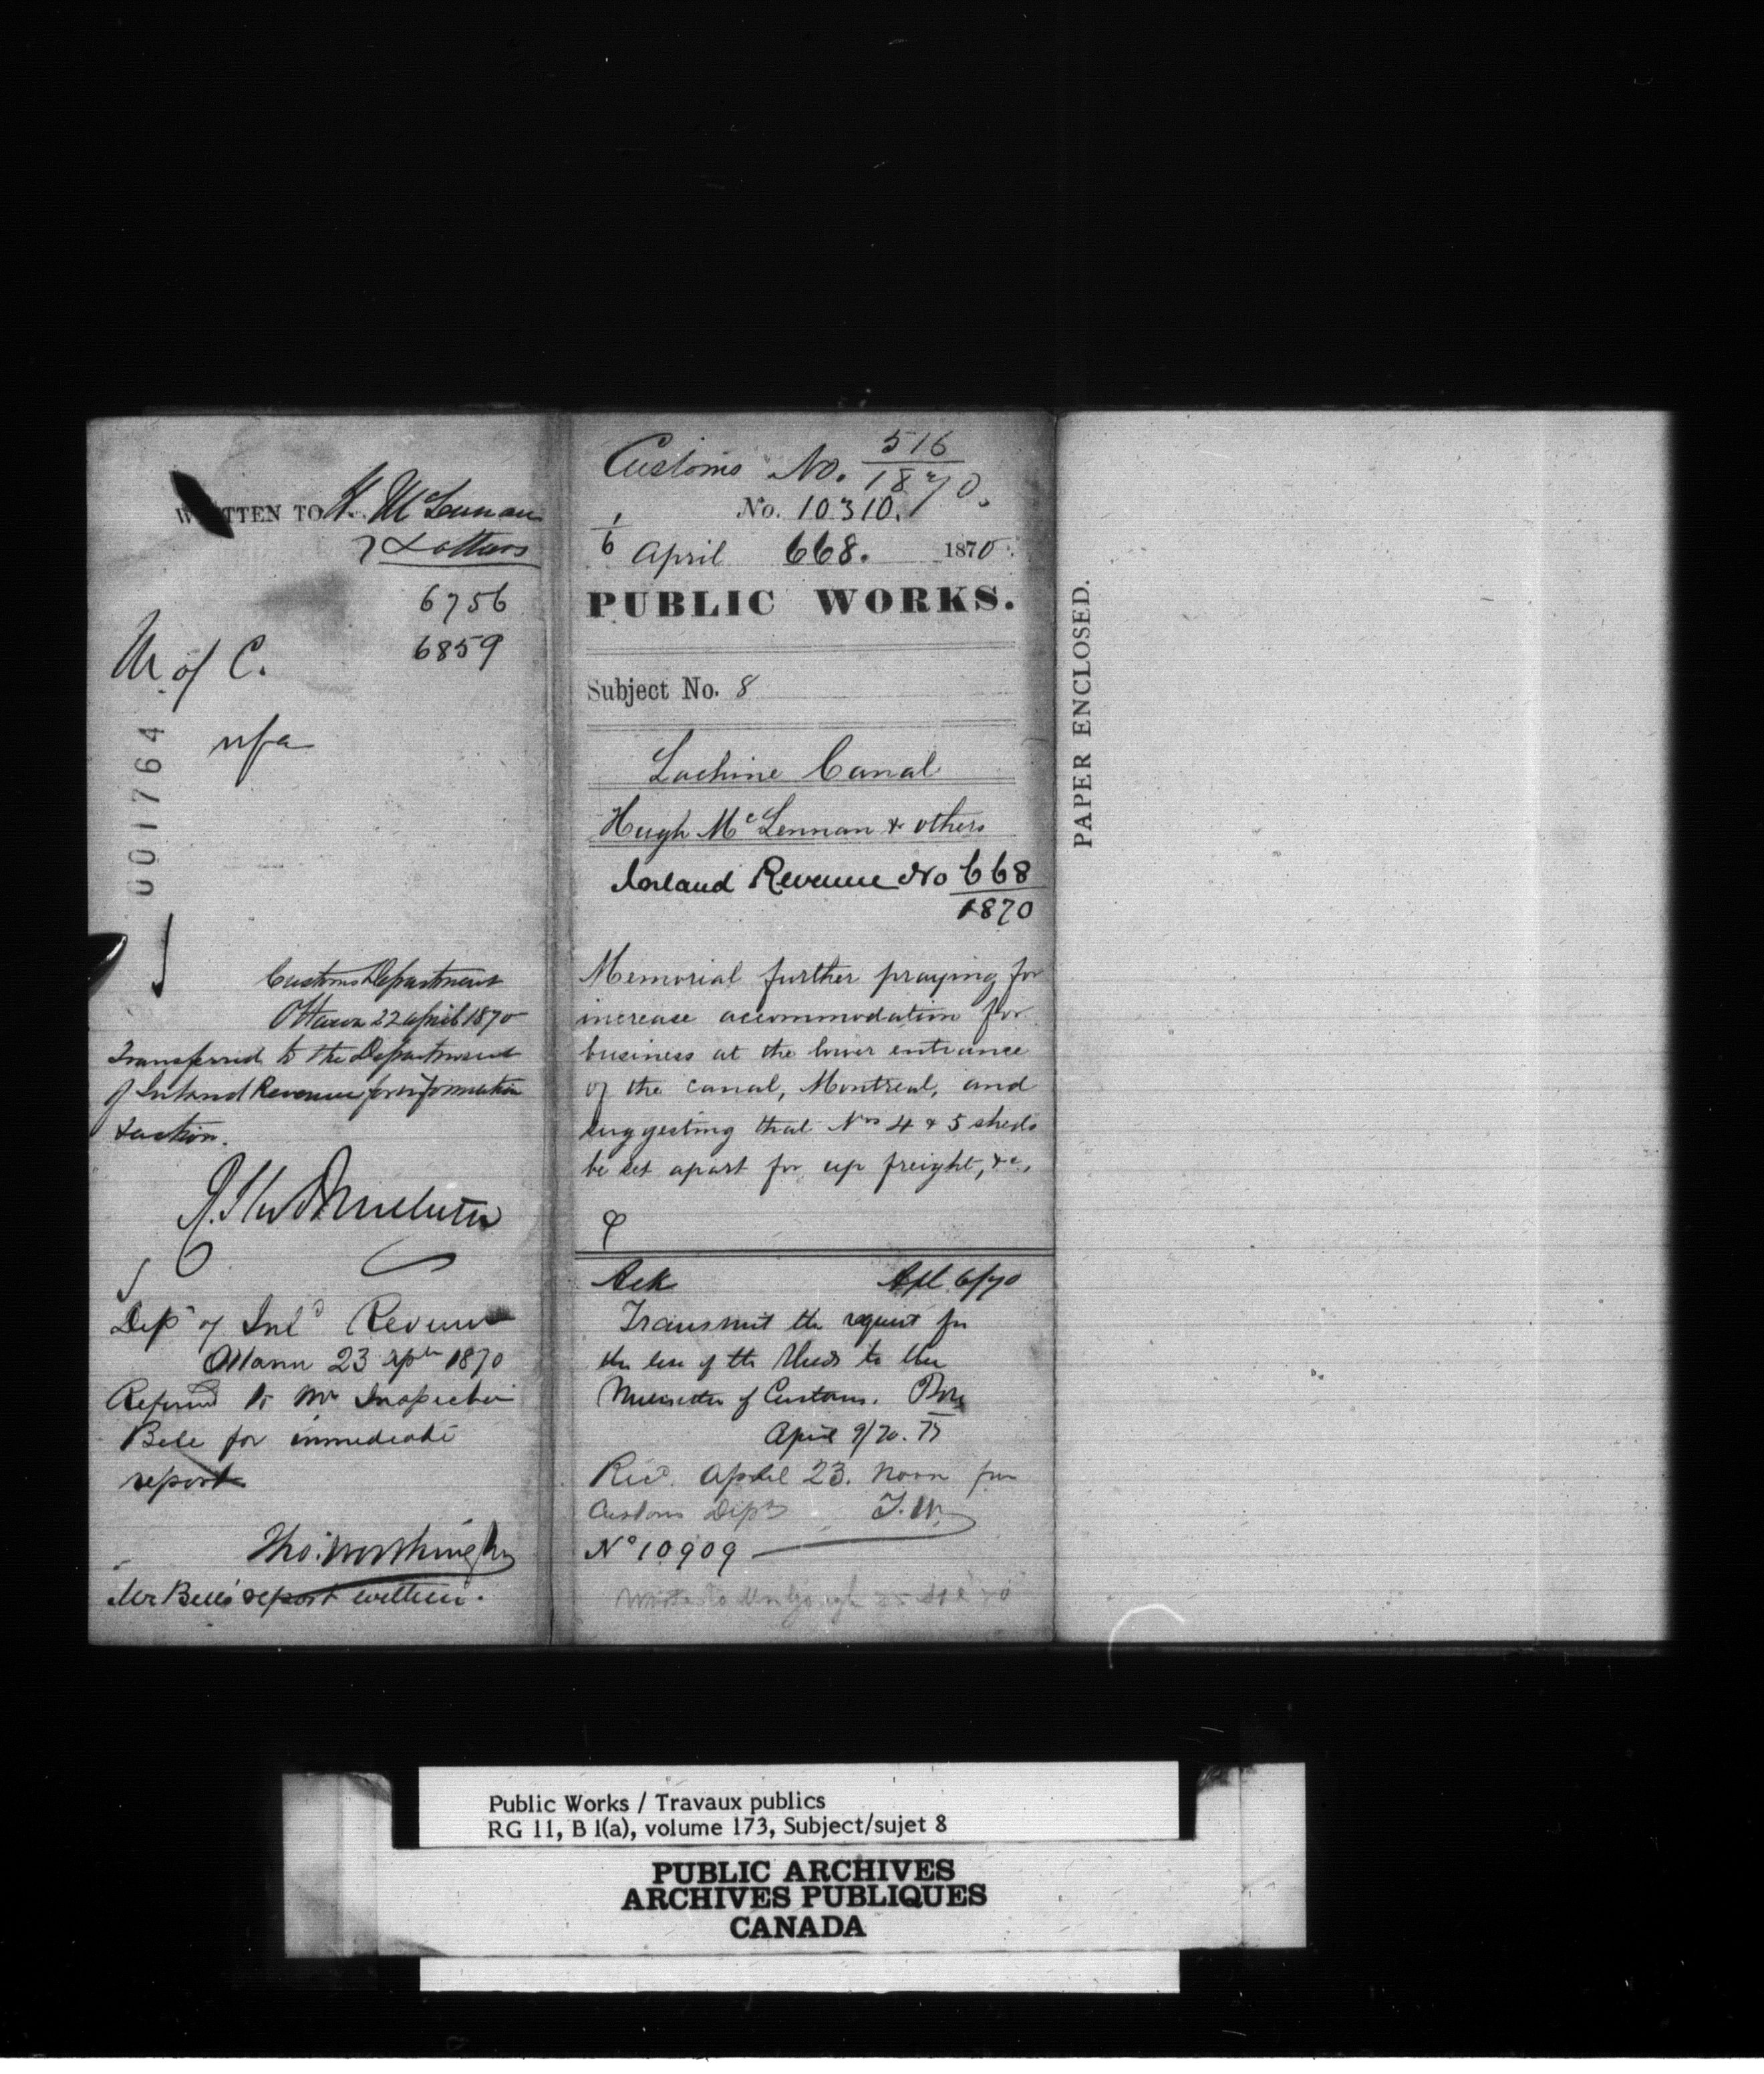 WRITTEN TO H. McLennan
& others
6756
6859
M of C.
nfa
001764
Customs Department
Ottawa 22 April 1870
Transferred to the Department
of Inland Revenue for information
& action.
Dept of Inld Revenue
Ottawa 23 Apl 1870
Referred to Mr Inspector
Bell for immediate
report
Tho: Worthington
Mr Bell's report within.
Customs No. 516
1870.
No. 10310.
1/6 April 668. 1870.
PUBLIC WORKS.
Subject No. 8
Lachine Canal
Hugh McLennan & others
Inland Revenue No 668
1870
Memorial further praying for
increase accommodation for
business at the lower entrance
of the canal, Montreal, and
suggesting that Nos 4 & 5 sheds
be set apart for up freight, &c.
Ack Apl 6/70
Transmit the request for
the use of the sheds to the
Minister of Customs.
April 9/70.
Recd. April 23. Noon from
Customs Dept T.W.
No 10909
PAPER ENCLOSED.
Public Works / Travaux publics
RG 11, B 1(a), volume 173, Subject/sujet 8
PUBLIC ARCHIVES
ARCHIVES PUBLIQUES
CANADA